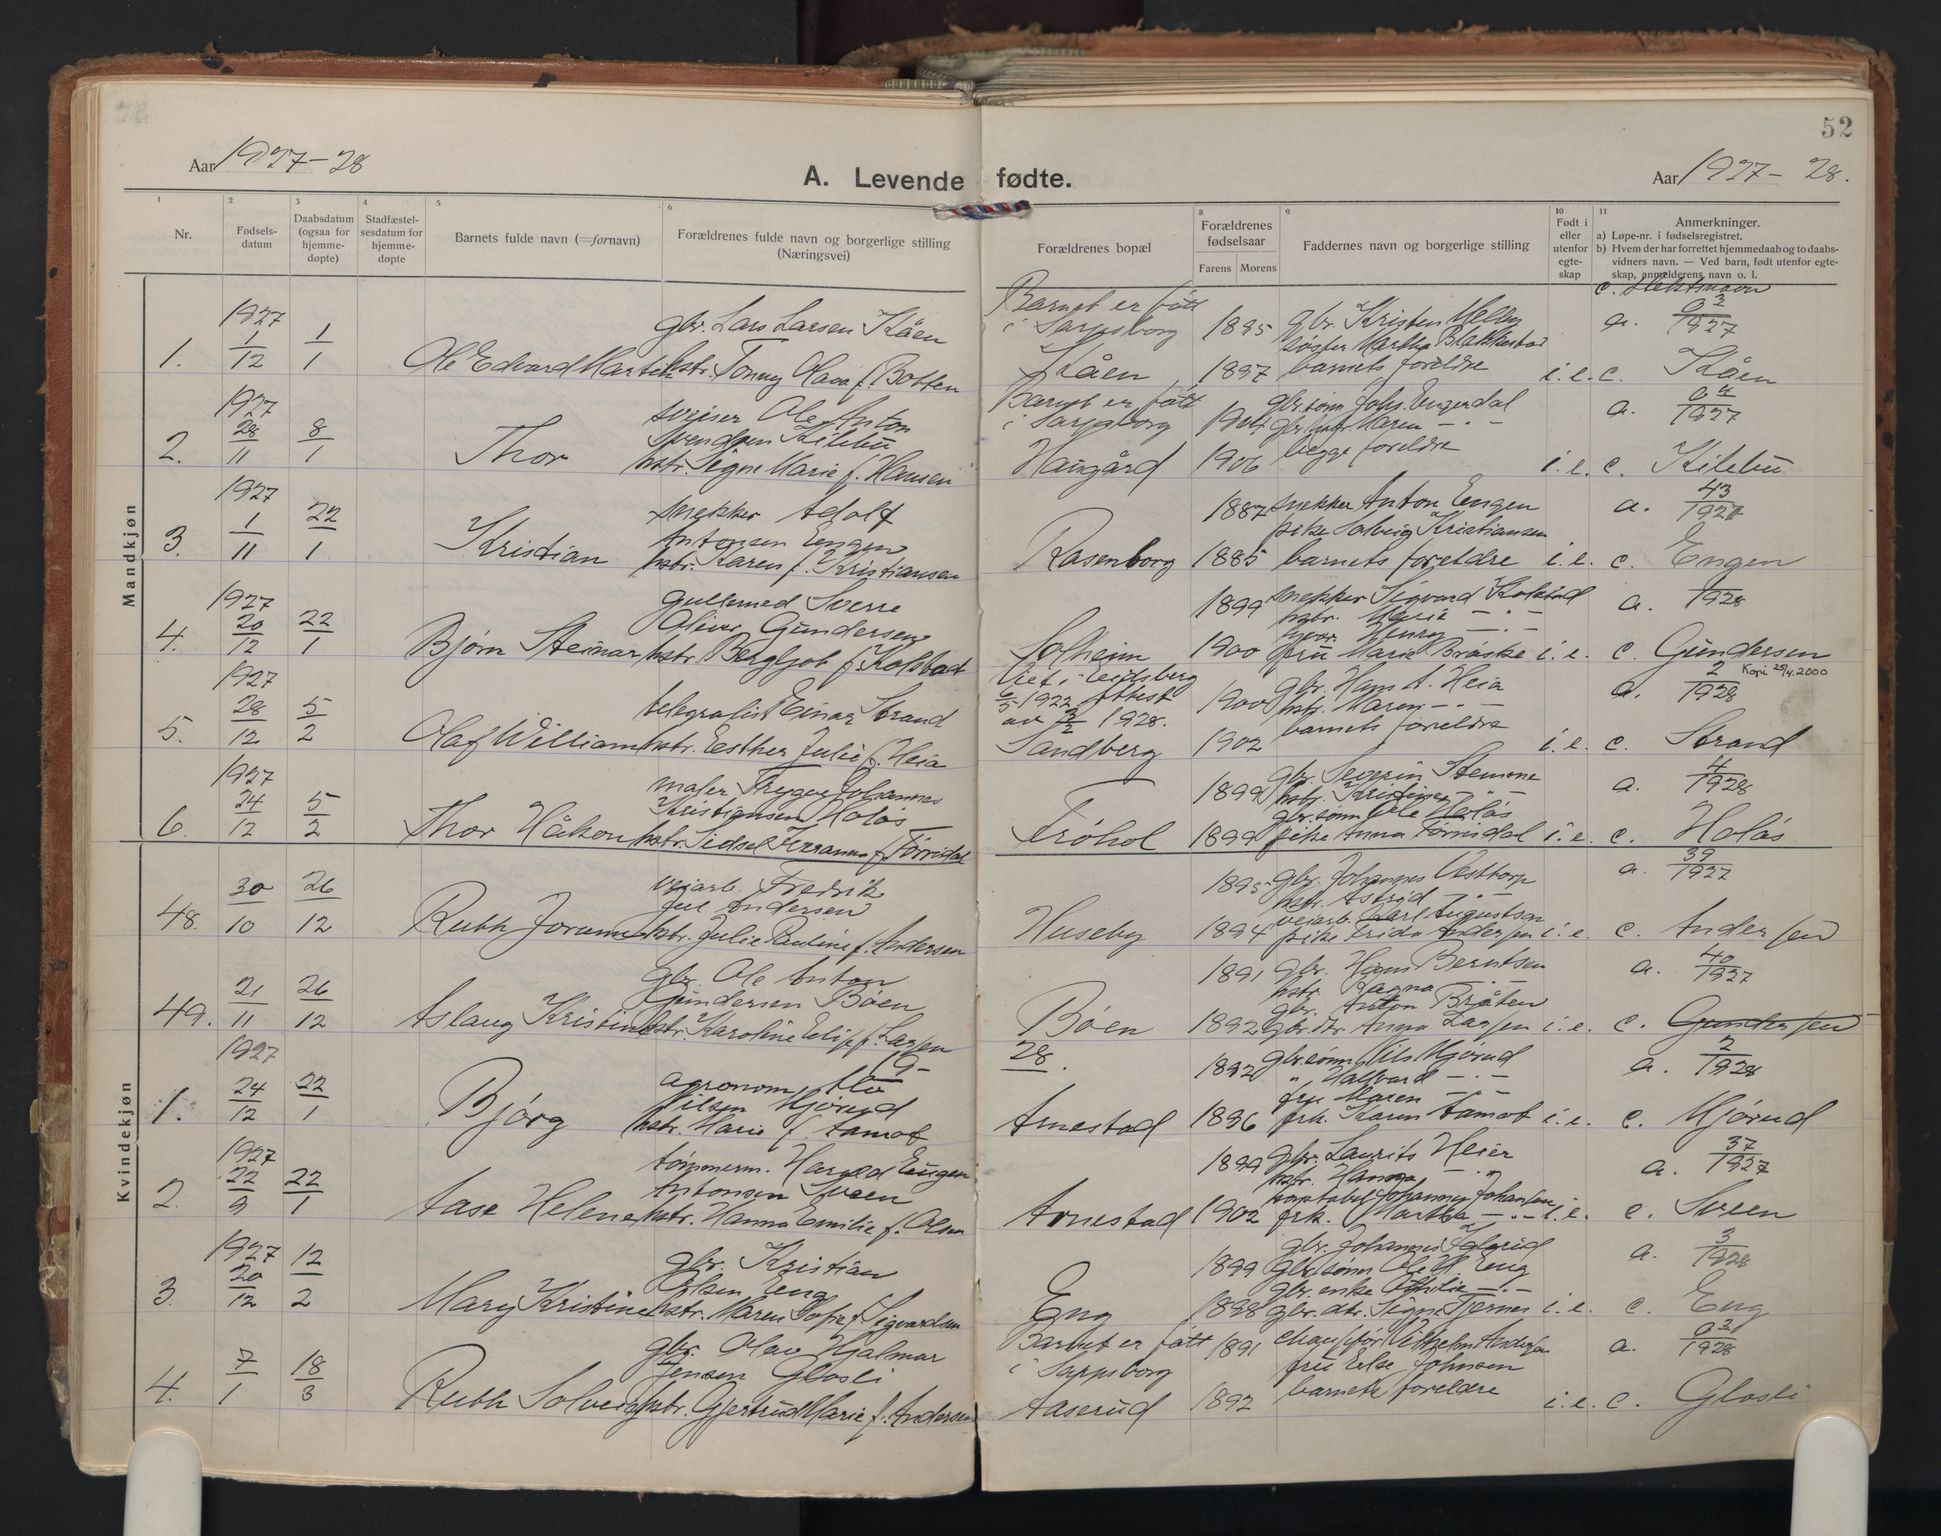 52
Aar 1927-28
A. Levende fødte.
Aar 1927-28.
1 2 3 4 5 6 8 9 10 11
Nr.
Fødsels-
datum
Daabsdatum
(ogsaa for
hjemme-
døpte)
Stadfæstel-
sesdatum for
hjemme-
døpte
Barnets fulde navn (=fornavn)
Forældrenes fulde navn og borgerlige stilling
(Næringsvei)
Forældrenes bopæl
Forældrenes
fødselsaar
Farens Morens
Faddernes navn og borgerlige stilling
Født i
eller
utenfor
egte-
skap
Anmerkninger.
a) Løpe-nr. i fødselsregistret.
b) Hvem der har forrettet hjemmedaab og to daabs-
vidners navn. — Ved barn, født utenfor egte-
skap, anmelderens navn o. l.
Mandkjøn
1927 gbr. Lars Larsen Kåen Barnet er født i Sarpsborg 1895 gbr. Kristen Melby a. 1927
1. 1/12 1/1 Ole Edvard Martin hstr. Tonny Olava f. Botten Kåen 1897 barnets foreldre i.e. c. Kåen
1927 Ole Anton Barnet er født a. 1927
2. 28/11 8/1 Svendsen Kilebu i Sarpsborg 1904
Thor hstr. Signe Marie f. Hansen Haugård 1906 begge foreldre i.e. c. Kilebu
1927 snekker Adolf 1887 snekker Anton Engen a. 43/1927
3. 1/11 22/1 Antonsen Engen pike Solveig Kristiansen
Kristian hstr. Karen f. Kristiansen Rosenborg 1885 barnets foreldre i.e. c. Engen
1927 gullsmed Sverre 1899 snekker Sigvard Kolstad a. 2/1928
4. 20/12 22/1 Oliver Gundersen hstr. Marie
Bjørn Steinar hstr. Bergljot f. Kolstad Solheim 1900 fru Marie Bråske i.e. c. Gundersen
Kopi 25/4.2000
1927 Viet i Eidsberg 1900 gbr. Hans A. Heia a. 2/1928
5. 28/12 5/2 telegrafist Einar Strand 1922 attest hstr. Maren
av 1928. barnets foreldre
Olaf William hstr. Esther Julie f. Heia Sandberg 1902 i.e. c. Strand
1927 maler Trygve Johannes 1899 gbr. Severin Stemme a. 4/1928
6. 24/12 5/2 Kristiansen Holås hstr. Kristine gbr.sønn Ole Holås
Thor Håkon hstr. Sidsel f. Tørrisdal Frøhol 1899 pike Anna Tørrisdal i.e. c. Holås
Kvindekjøn
veiarb. Fredrik 1895 gbr. Johannes Vesttorp a. 39/1927
48. 30/10 26/12 Jul Andersen hstr. Astrid
veiarb. Karl Augustsen
Ruth Jorunn hstr. Julie Pauline f. Andersen Huseby 1894 pike Frida Andersen i.e. c. Andersen
gbr. Ole Anton 1891 gbr. Hans Berntsen a. 40/1927
49. 21/11 26/12 Gundersen Bøen hstr. Ragna gbr. Anton Bråten
Aslaug Kristine hstr. Karoline f. Larsen Bøen 1892 gbr.dtr. Anna Larsen i.e. c. Gundersen
1927 28. 1892 gbr.sønn Nils Mjørud a. 2/1928
1. 24/12 22/1 agronom Nilsen Mjørud " Hallvard fru Maren
Bjørg hstr. Marie f. Aamot Arnestad 1896 frk. Karen Aamot i.e. c. Mjørud
1927 tømmerm. Harald Eugen 1899 gbr. Laurits Heier a. 37/1927
2. 22/9 22/1 Antonsen Sveen hstr. Hanna
Aase Helene hstr. Hanna Emilie f. Olsen Arnestad 1902 frk. Martha i.e. c. Sveen
1927 gbr. Kristian gbr. Johannes a. 3/1928
3. 20/12 12/2 Olsen Eng 1899 gbr.sønn Ole H. Eng
gbr. enke Othilie
Mary Kristine hstr. Maren Sofie f. Sigvardsen Eng 1898 gbr. dtr. Signe Tjernes i.e. c. Eng
gbr. Olav Hjalmar Barnet er født 1891 chauffør Vilhelm Andersen a. 1928
4. 7/1 18/3 Jensen Glosli i Sarpsborg fru Else Johnsen
Ruth Solveig hstr. Gjertrud Marie f. Andersen Aaserud 1892 barnets foreldre i.e. c. Glosli